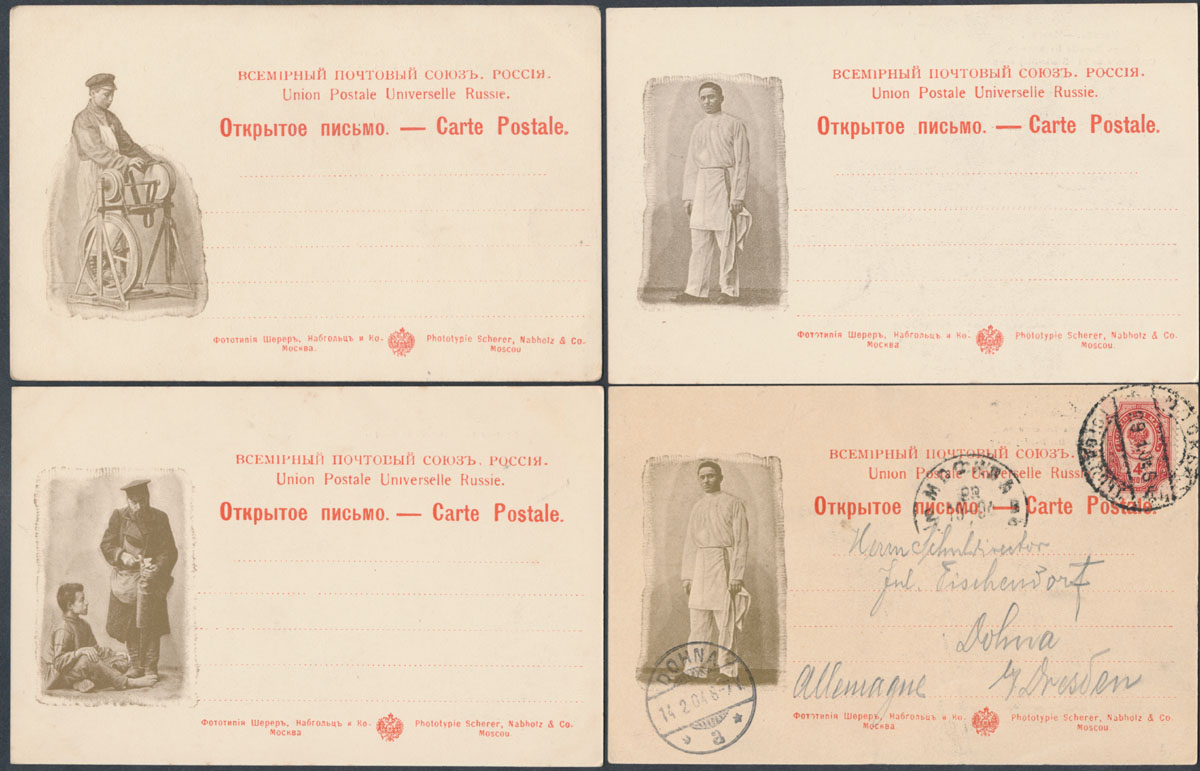 ВСЕМІРНЫЙ ПОЧТОВЫЙ СОЮЗЪ. РОССІЯ.
Union Postale Universelle Russie.
Открытое письмо. — Carte Postale.
Фототипія Шереръ, Набгольцъ и Ко-
Москва.
Phototypie Scherer, Nabholz & Co.
Moscou
ВСЕМІРНЫЙ ПОЧТОВЫЙ СОЮЗЪ. РОССІЯ.
Union Postale Universelle Russie.
Открытое письмо. — Carte Postale.
Фототипія Шереръ, Набгольцъ и Ко-
Москва
Phototypie Scherer, Nabholz & Co.
Moscou.
ВСЕМІРНЫЙ ПОЧТОВЫЙ СОЮЗЪ. РОССІЯ.
Union Postale Universelle Russie.
Открытое письмо. — Carte Postale.
Фототипія Шереръ, Набгольцъ и Ко-
Москва
Phototypie Scherer, Nabholz & Co.
Moscou.
ВСЕМІРНЫЙ ПОЧТОВЫЙ СОЮЗЪ.
Union Postale Universelle Russie
Открытое письмо. — Carte Postale.
Herrn Schuldirector
Jul. Eischendorf
Dohna
Allemagne
b/Dresden
DOHNA
14.2.04.8-
a
Фототипія Шереръ, Набгольцъ и Ко-
Москва
Phototypie Scherer, Nabholz & Co.
Moscou.